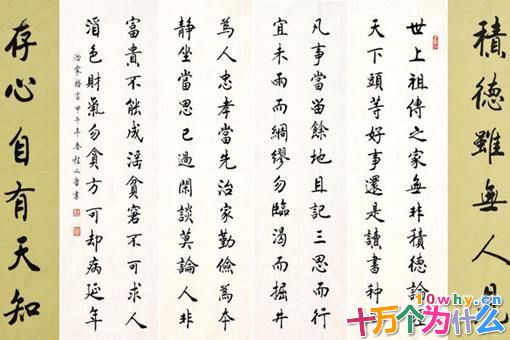 積德雖無人見
世上祖傳之家無非積德論經
天下頭等好事還是讀書种
凡事當留餘地且記三思而行
宜未雨而綢繆勿臨渴而掘井
為人忠孝當先治家勤儉為本
靜坐當思己過閑談莫論人非
富貴不能成淫貧窘不可求人
酒色財氣勿貪方可却病延年
治家格言甲午年春程文書
存心自有天知
10why.cn
十万个为什么